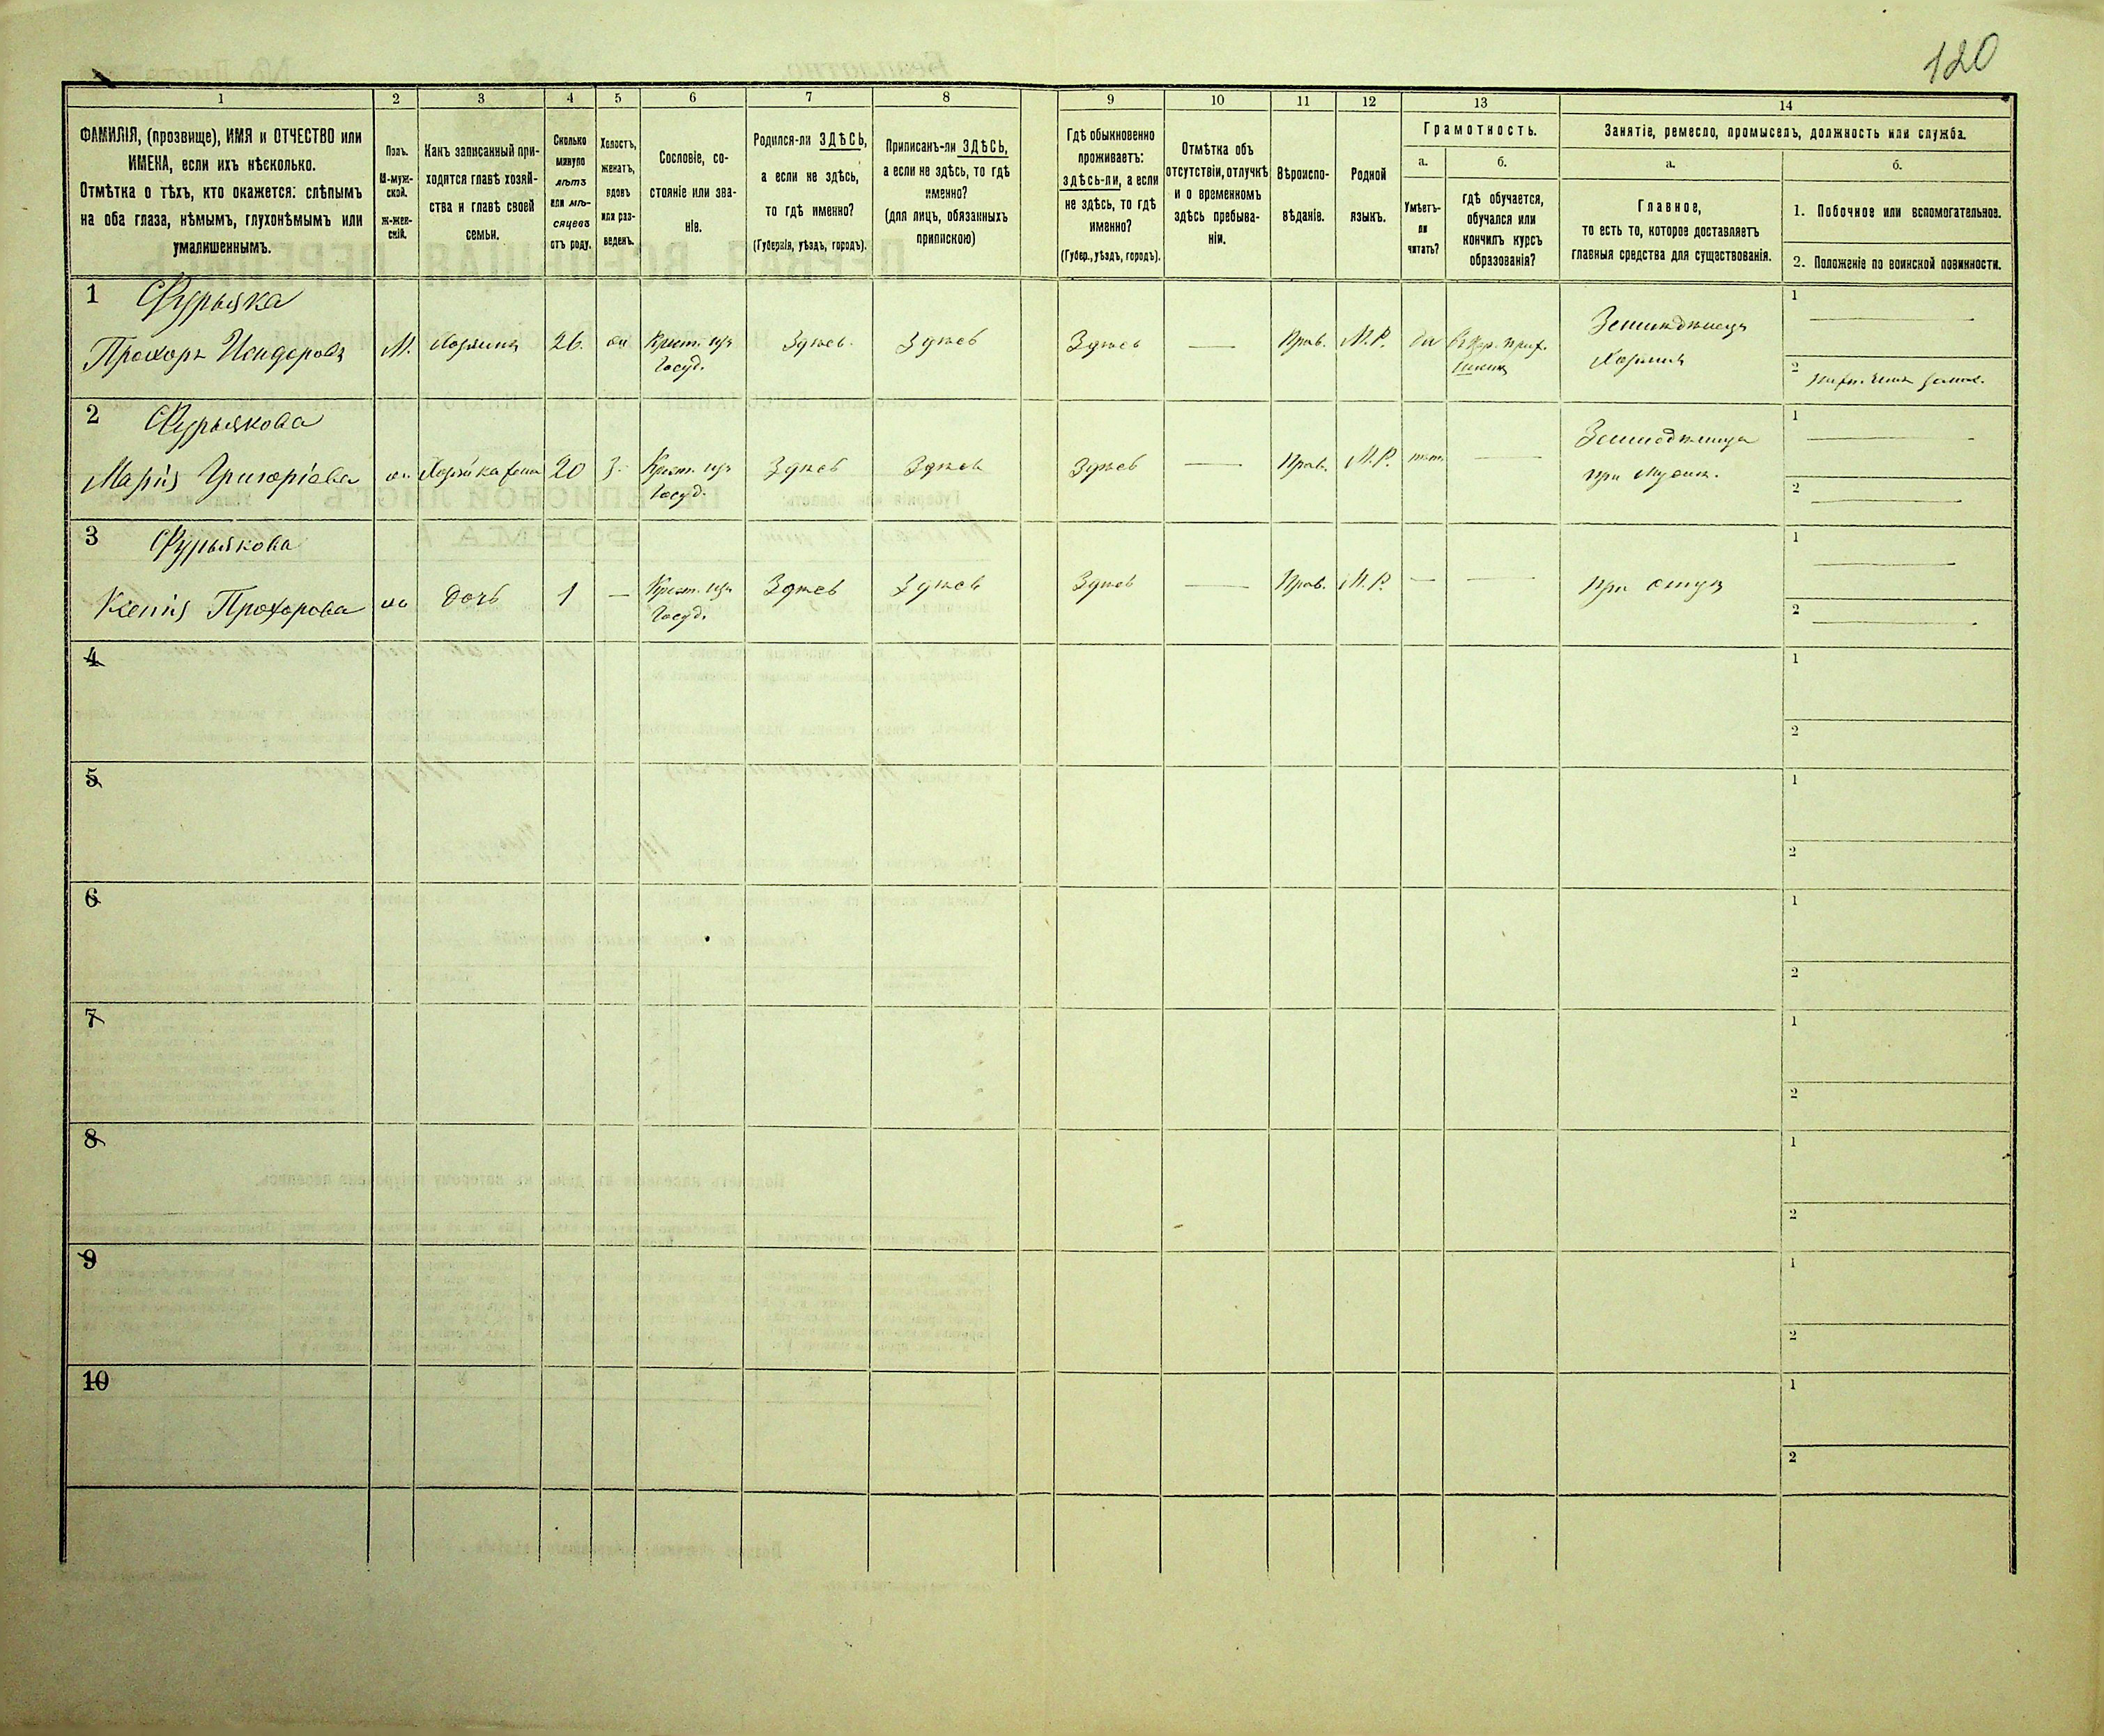 120
1
2
3
4
5
6
7
8
9
10
11
12
13
14
ФАМИЛІЯ, (прозвище), ИМЯ и ОТЧЕСТВО или
ИМЕНА, если ихъ нѣсколько.
Отмѣтка о тѣхъ, кто окажется: слѣпымъ
на оба глаза, нѣмымъ, глухонѣмымъ или
умалишеннымъ.
Полъ.
М-муж-
ской.
Ж-жен-
скій.
Какъ записанный при-
ходится главѣ хозяй-
ства и главѣ своей
семьи.
Сколько
минуло
лѣтъ
или мѣ-
сяцевъ
отъ роду.
Холостъ,
женатъ,
вдовъ
или раз-
веденъ.
Сословіе, со-
стояніе или зва-
ніе.
Родился-ли ЗДѢСЬ,
а если не здѣсь,
то гдѣ именно?
(Губернія, уѣздъ, городъ).
Приписанъ-ли ЗДѢСЬ,
а если не здѣсь, то гдѣ
именно?
(для лицъ, обязанныхъ
припискою)
Гдѣ обыкновенно
проживаетъ:
здѣсь-ли, а если
не здѣсь, то гдѣ
именно?
(Губер., уѣздъ, городъ).
Отмѣтка объ
отсутствіи, отлучкѣ
и о временномъ
здѣсь пребыва-
ніи.
Вѣроиспо-
вѣданіе.
Родной
языкъ.
Грамотность.
а.
Умѣетъ-
ли
читать?
б.
гдѣ обучается,
обучался или
кончилъ курсъ
образованія?
Занятіе, ремесло, промыселъ, должность или служба.
а.
Главное,
то есть то, которое доставляетъ
главныя средства для существованія.
б.
1. Побочное или вспомогательное.
2. Положеніе по воинской повинности.
1 Фурыяка
Прохоръ Исидоровъ М. Хозяинъ 26. ж Крест. изъ Госуд. Здѣсь Здѣсь Здѣсь — Прав. М.Р. да
Земледѣлецъ
Хозяинъ
1
2
2 Фурьякова
Марія Григоріева ж. Хозяйка жена 20 З. Крест. изъ Госуд. Здѣсь Здѣсь Здѣсь — Прав. М.Р. нѣтъ —
Земледѣлица
при мужѣ.
1
2
3 Фурьякова
Ксенія Прохорова ж дочь 1 — Крест. изъ Госуд. Здѣсь Здѣсь Здѣсь — Прав. М.Р. — —
при отцѣ
1
2
4
1
2
5
1
2
6
1
2
7
1
2
8
1
2
9
1
2
10
1
2